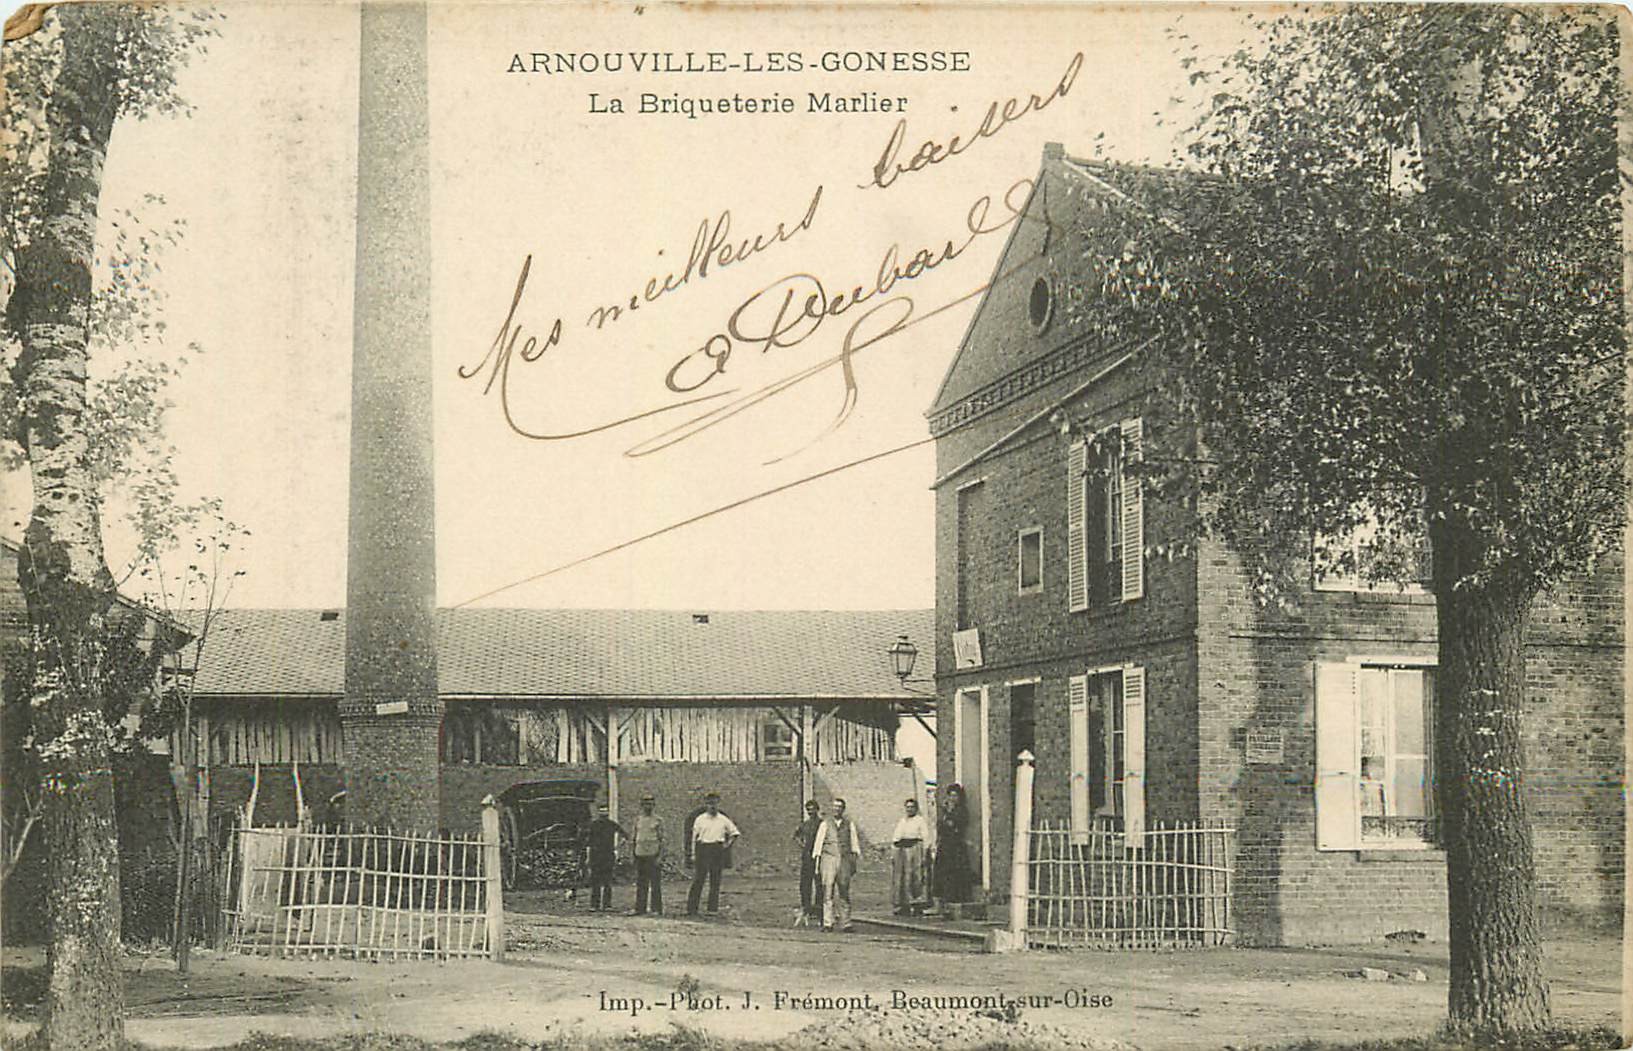 ARNOUVILLE-LES-GONESSE
La Briqueterie Marlier
Mes meilleurs baisers
Imp.-Phot. J. Frémont, Beaumont-sur-Oise